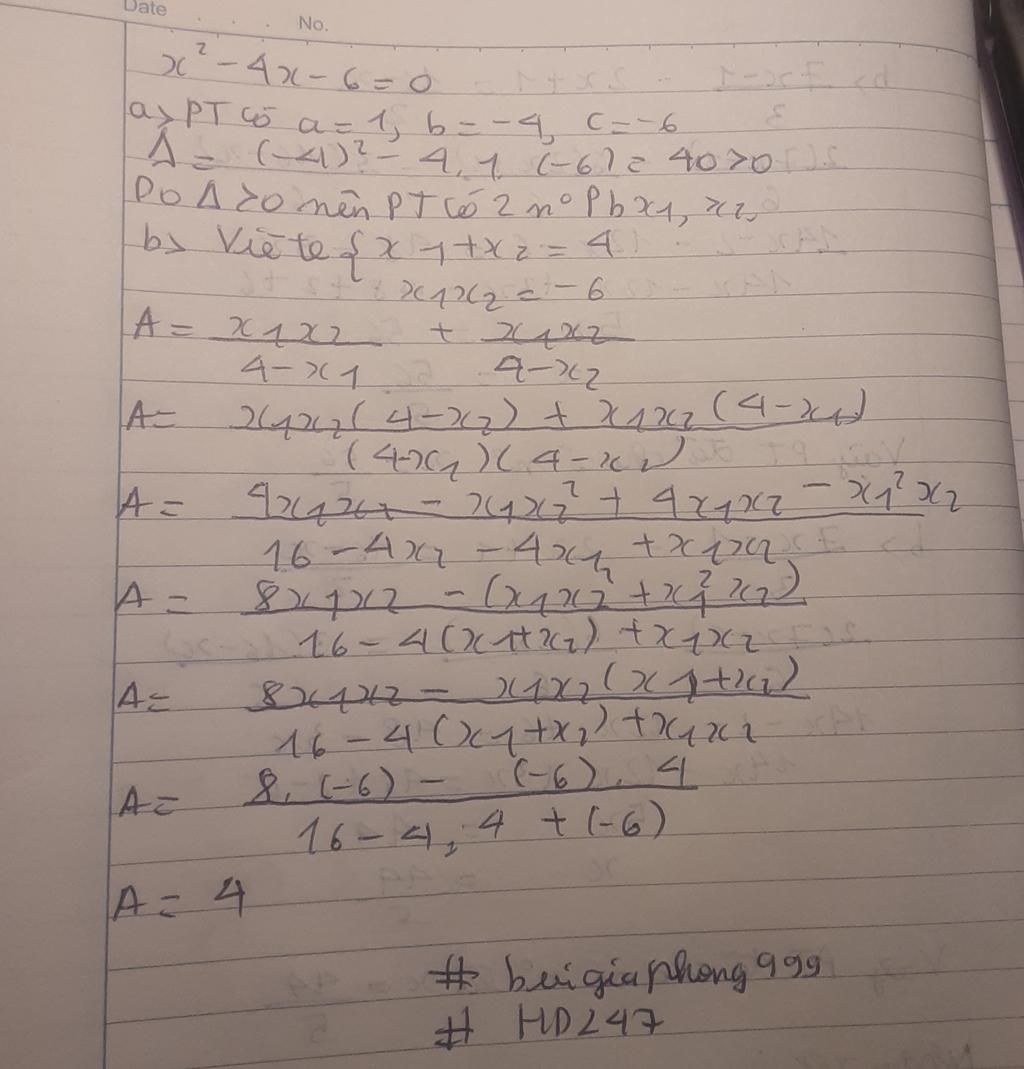 Date . . . No.
x² - 4x - 6 = 0
a> PT có a = 1, b = -4, c = -6
Δ = (-4)² - 4.1.(-6) = 40 > 0
Do Δ > 0 nên PT có 2 nº Pb x1, x2,
b> Viète { x1 + x2 = 4
x1x2 = -6
A = x1x2 / 4 - x1 + x1x2 / 4 - x2
A = x1x2(4 - x2) + x1x2(4 - x1) / (4 - x1)(4 - x2)
A = 4x1x2 - x1x2² + 4x1x2 - x1²x2 / 16 - 4x2 - 4x1 + x1x2
A = 8x1x2 - (x1x2² + x1²x2) / 16 - 4(x1 + x2) + x1x2
A = 8x1x2 - x1x2(x1 + x2) / 16 - 4(x1 + x2) + x1x2
A = 8.(-6) - (-6).4 / 16 - 4.4 + (-6)
A = 4
# buigiaphong999
# HDZ47